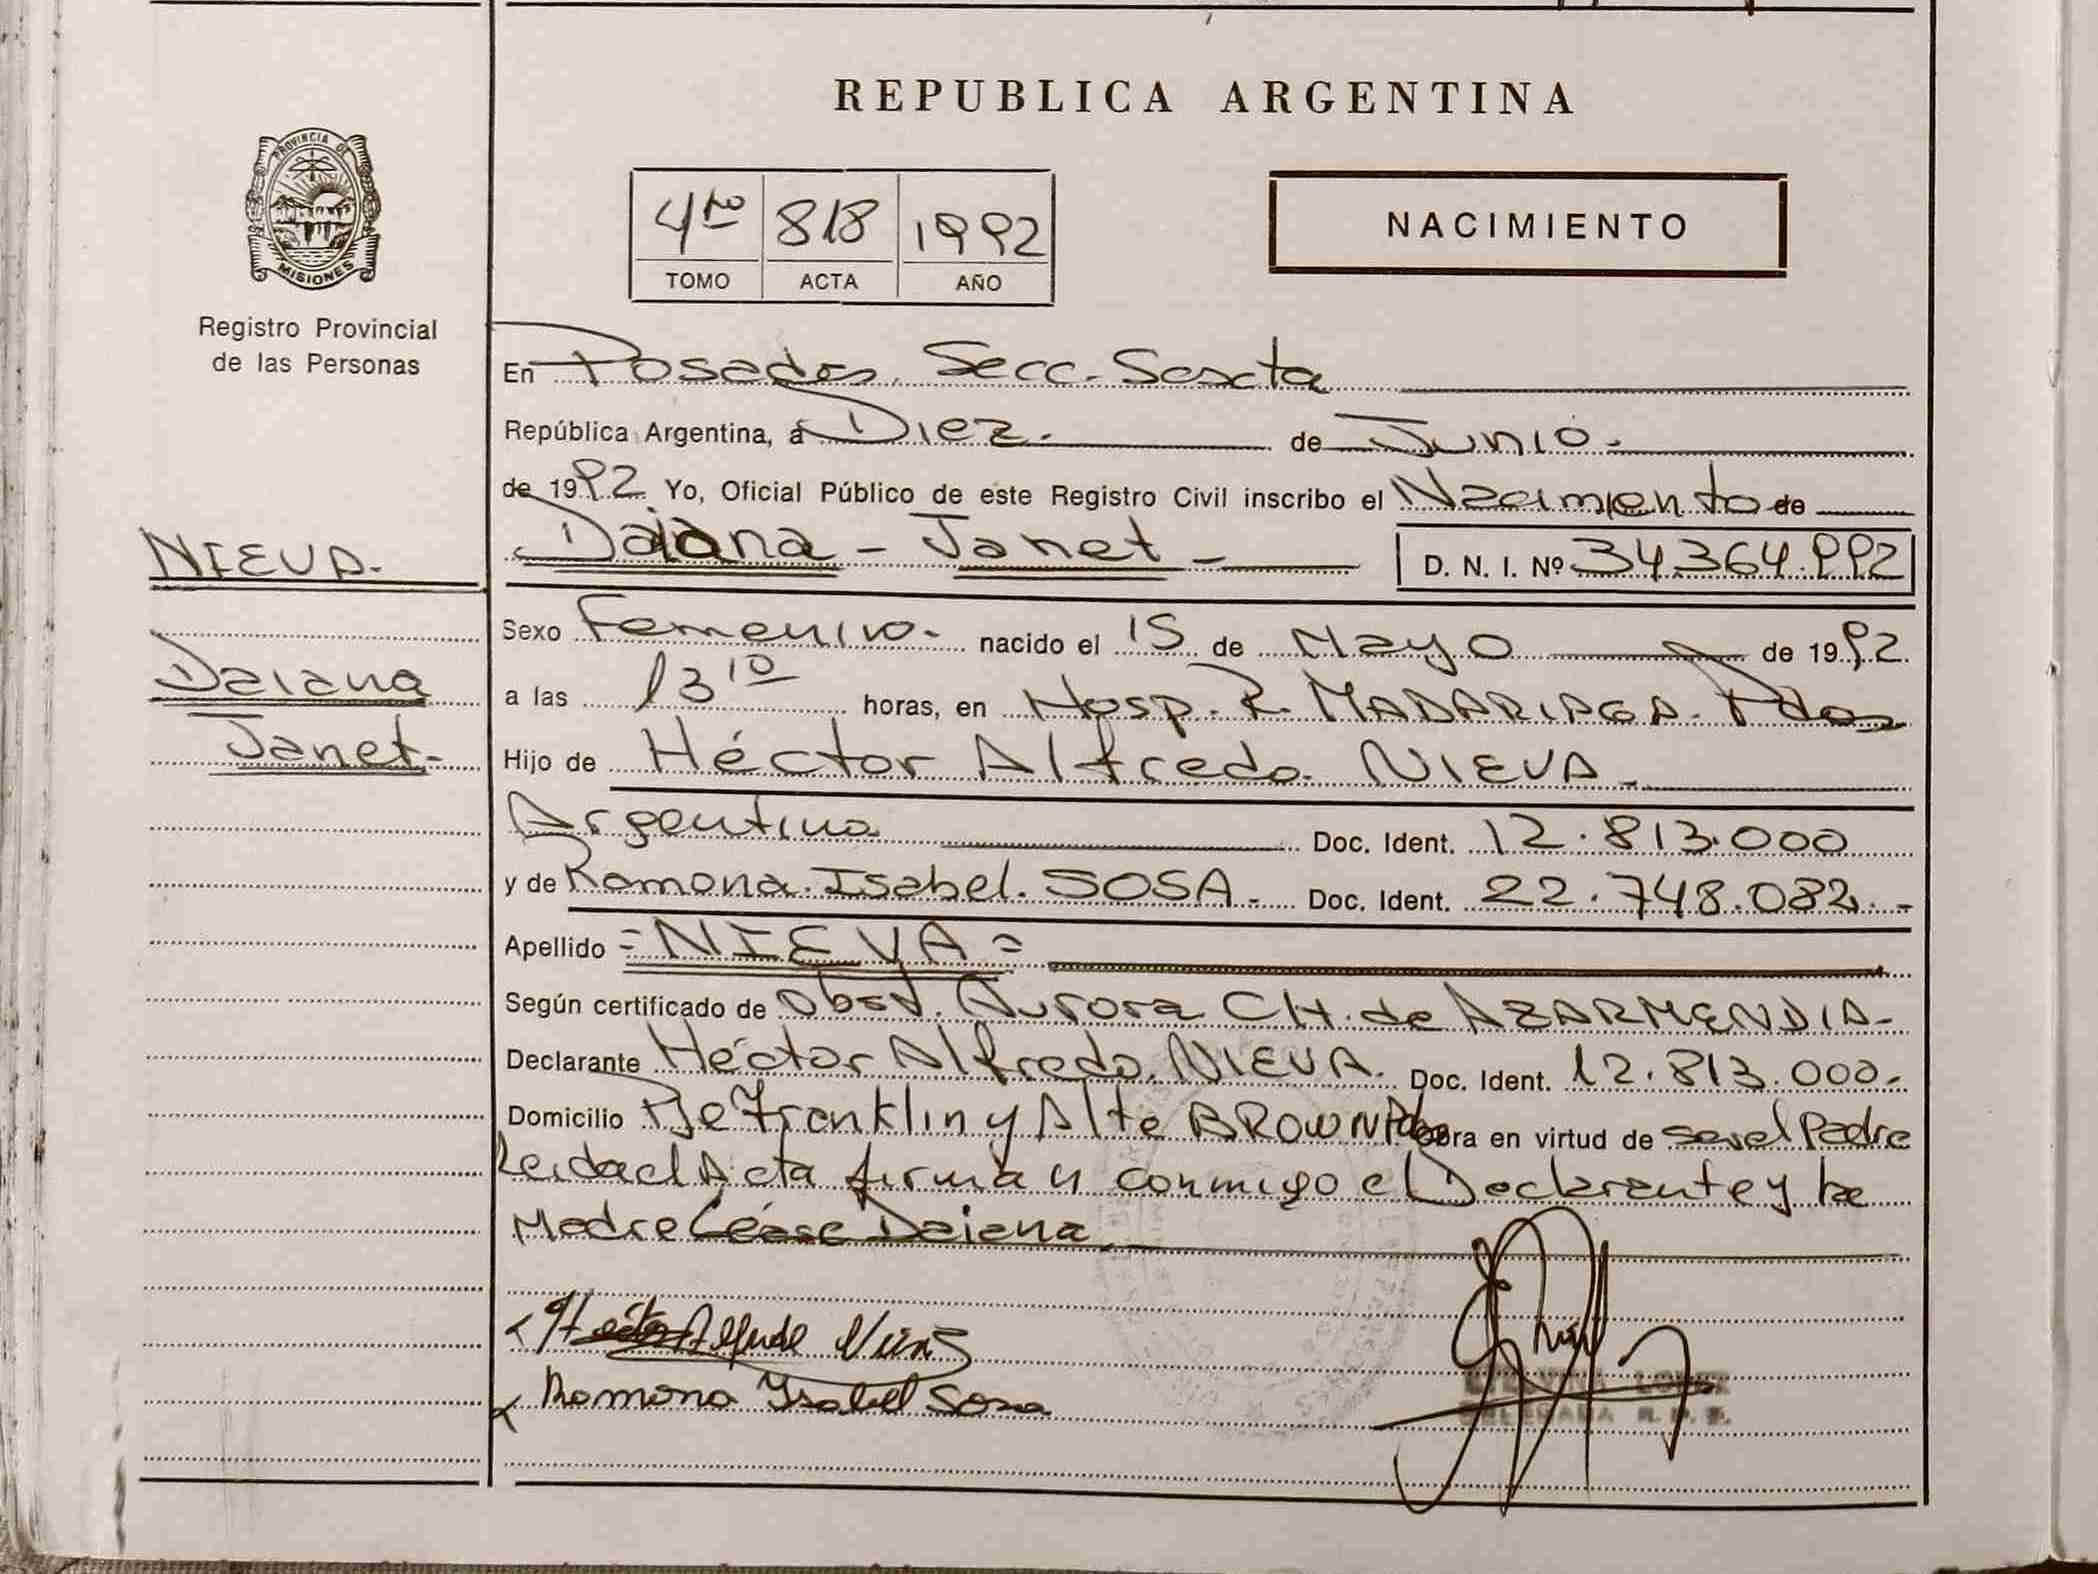 REPUBLICA ARGENTINA
PROVINCIA DE
MISIONES
Registro Provincial
de las Personas
4to 818 1992
TOMO ACTA AÑO
NACIMIENTO
En Posadas. Secc. Sexta
República Argentina, a Diez. de Junio.
de 1992 Yo, Oficial Público de este Registro Civil inscribo el Nacimiento de
NIEVA.
Daiana - Janet - D. N. I. Nº 34.364.992
Sexo Femenino. nacido el 15 de Mayo de 1992.
Daiana
a las 13 10 horas, en Hosp. R. MADARIAGA. Pdas
Janet.
Hijo de Héctor Alfredo NIEVA.
Argentino Doc. Ident. 12.813.000
y de Ramona Isabel. SOSA. Doc. Ident. 22.748.082.-
Apellido =NIEVA=
Según certificado de Obst. Aurora CH. de AZARMENDIA-
Declarante Héctor Alfredo. NIEVA. Doc. Ident. 12.813.000.
Domicilio Pje Franklin y Alte BROWN Pdas obra en virtud de ser el Padre
Leida el Acta firma n conmigo el Declarante y la
Madre Léase Daiana
Hector Alfredo Nieva
Ramona Ysabel Sosa
LOPEZ
DELEGADA R. P. P.